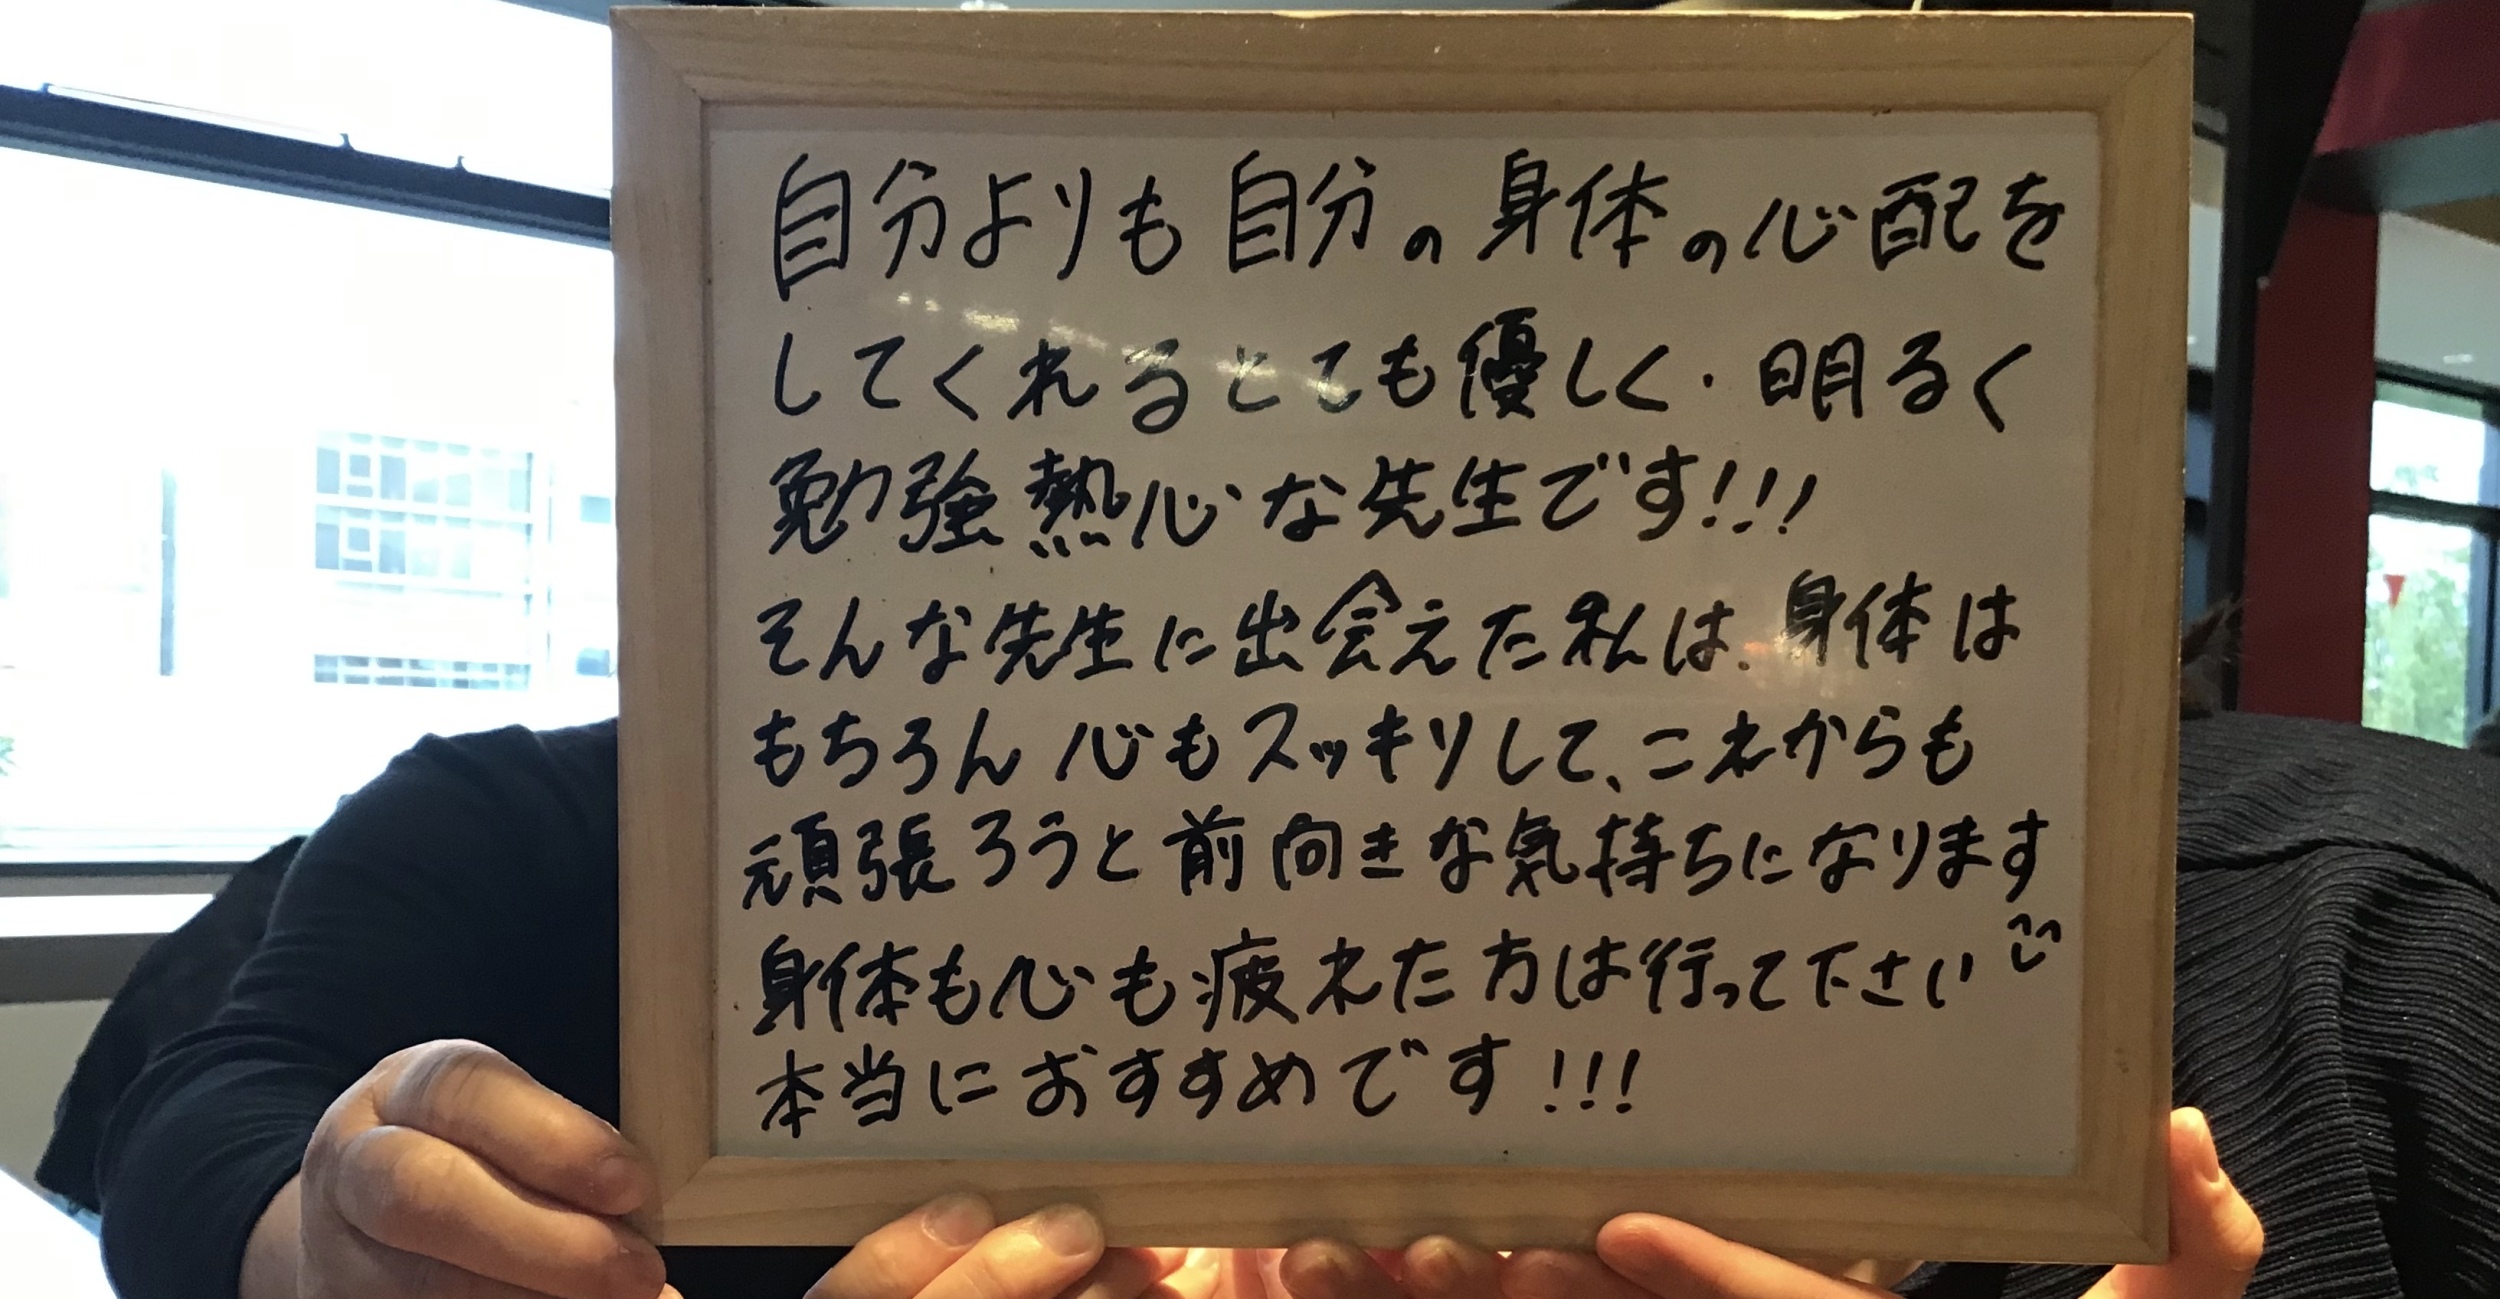 自分よりも自分の身体の心配を
してくれるとても優しく・明るく
勉強熱心な先生です!!!
そんな先生に出会えた私は、身体は
もちろん心もスッキリして、これからも
頑張ろうと前向きな気持ちになります
身体も心も疲れた方は行って下さい
本当におすすめです!!!